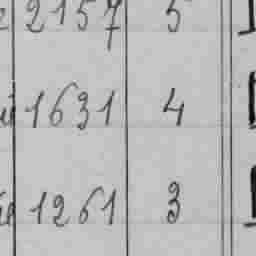 2157 5
1631 4
1261 3